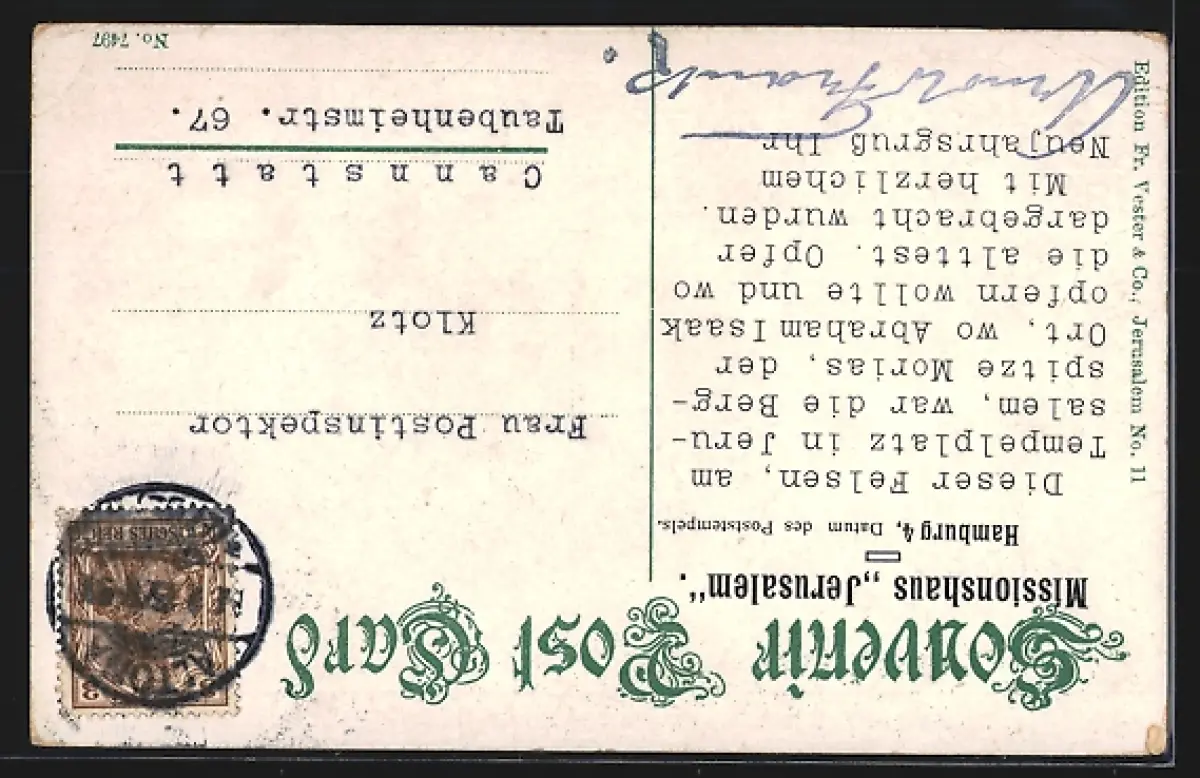 Souvenir Post Card
Missionshaus „Jerusalem“.
Hamburg 4, Datum des Poststempels.
Dieser Felsen, am
Tempelplatz in Jeru-
salem, war die Berg-
spitze Morias, der
Ort, wo Abraham Isaak
opfern wollte und wo
die alttest. Opfer
dargebracht wurden.
Mit herzlichem
Neujahrsgruß Ihr
Arnold Frank.
Frau Postinspektor
Klotz
Cannstatt
Taubenheimstr. 67.
Edition Fr. Vester & Co., Jerusalem No. 11
No. 7497
DEUTSCHES REICH